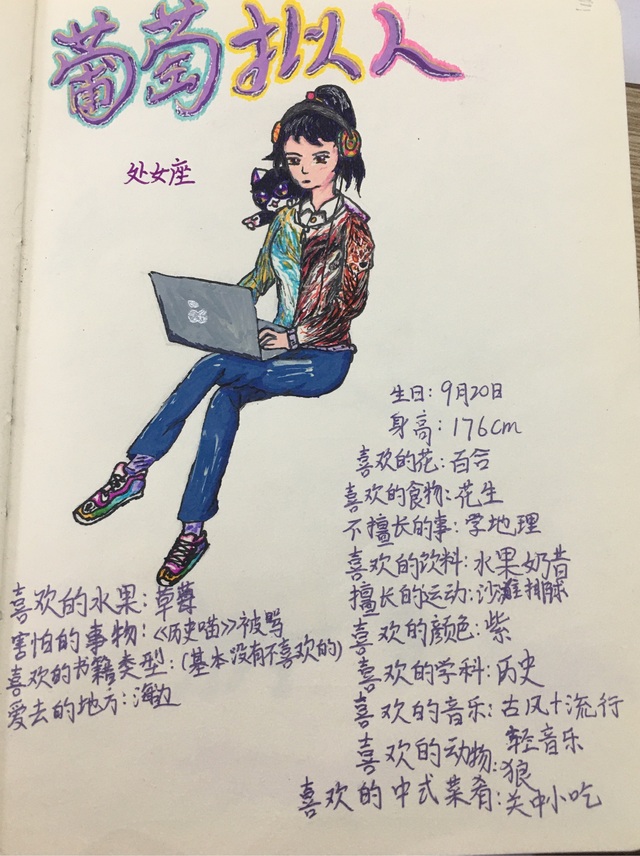 葡萄拟人
处女座
生日: 9月20日
身高: 176cm
喜欢的花: 百合
喜欢的食物: 花生
不擅长的事: 学地理
喜欢的饮料: 水果奶昔
擅长的运动: 沙滩排球
喜欢的颜色: 紫
喜欢的学科: 历史
喜欢的音乐: 古风+流行
轻音乐
喜欢的动物: 狼
喜欢的中式菜肴: 关中小吃
喜欢的水果: 草莓
害怕的事物: 《历史喵》被骂
喜欢的书籍类型: (基本没有不喜欢的)
爱去的地方: 海边